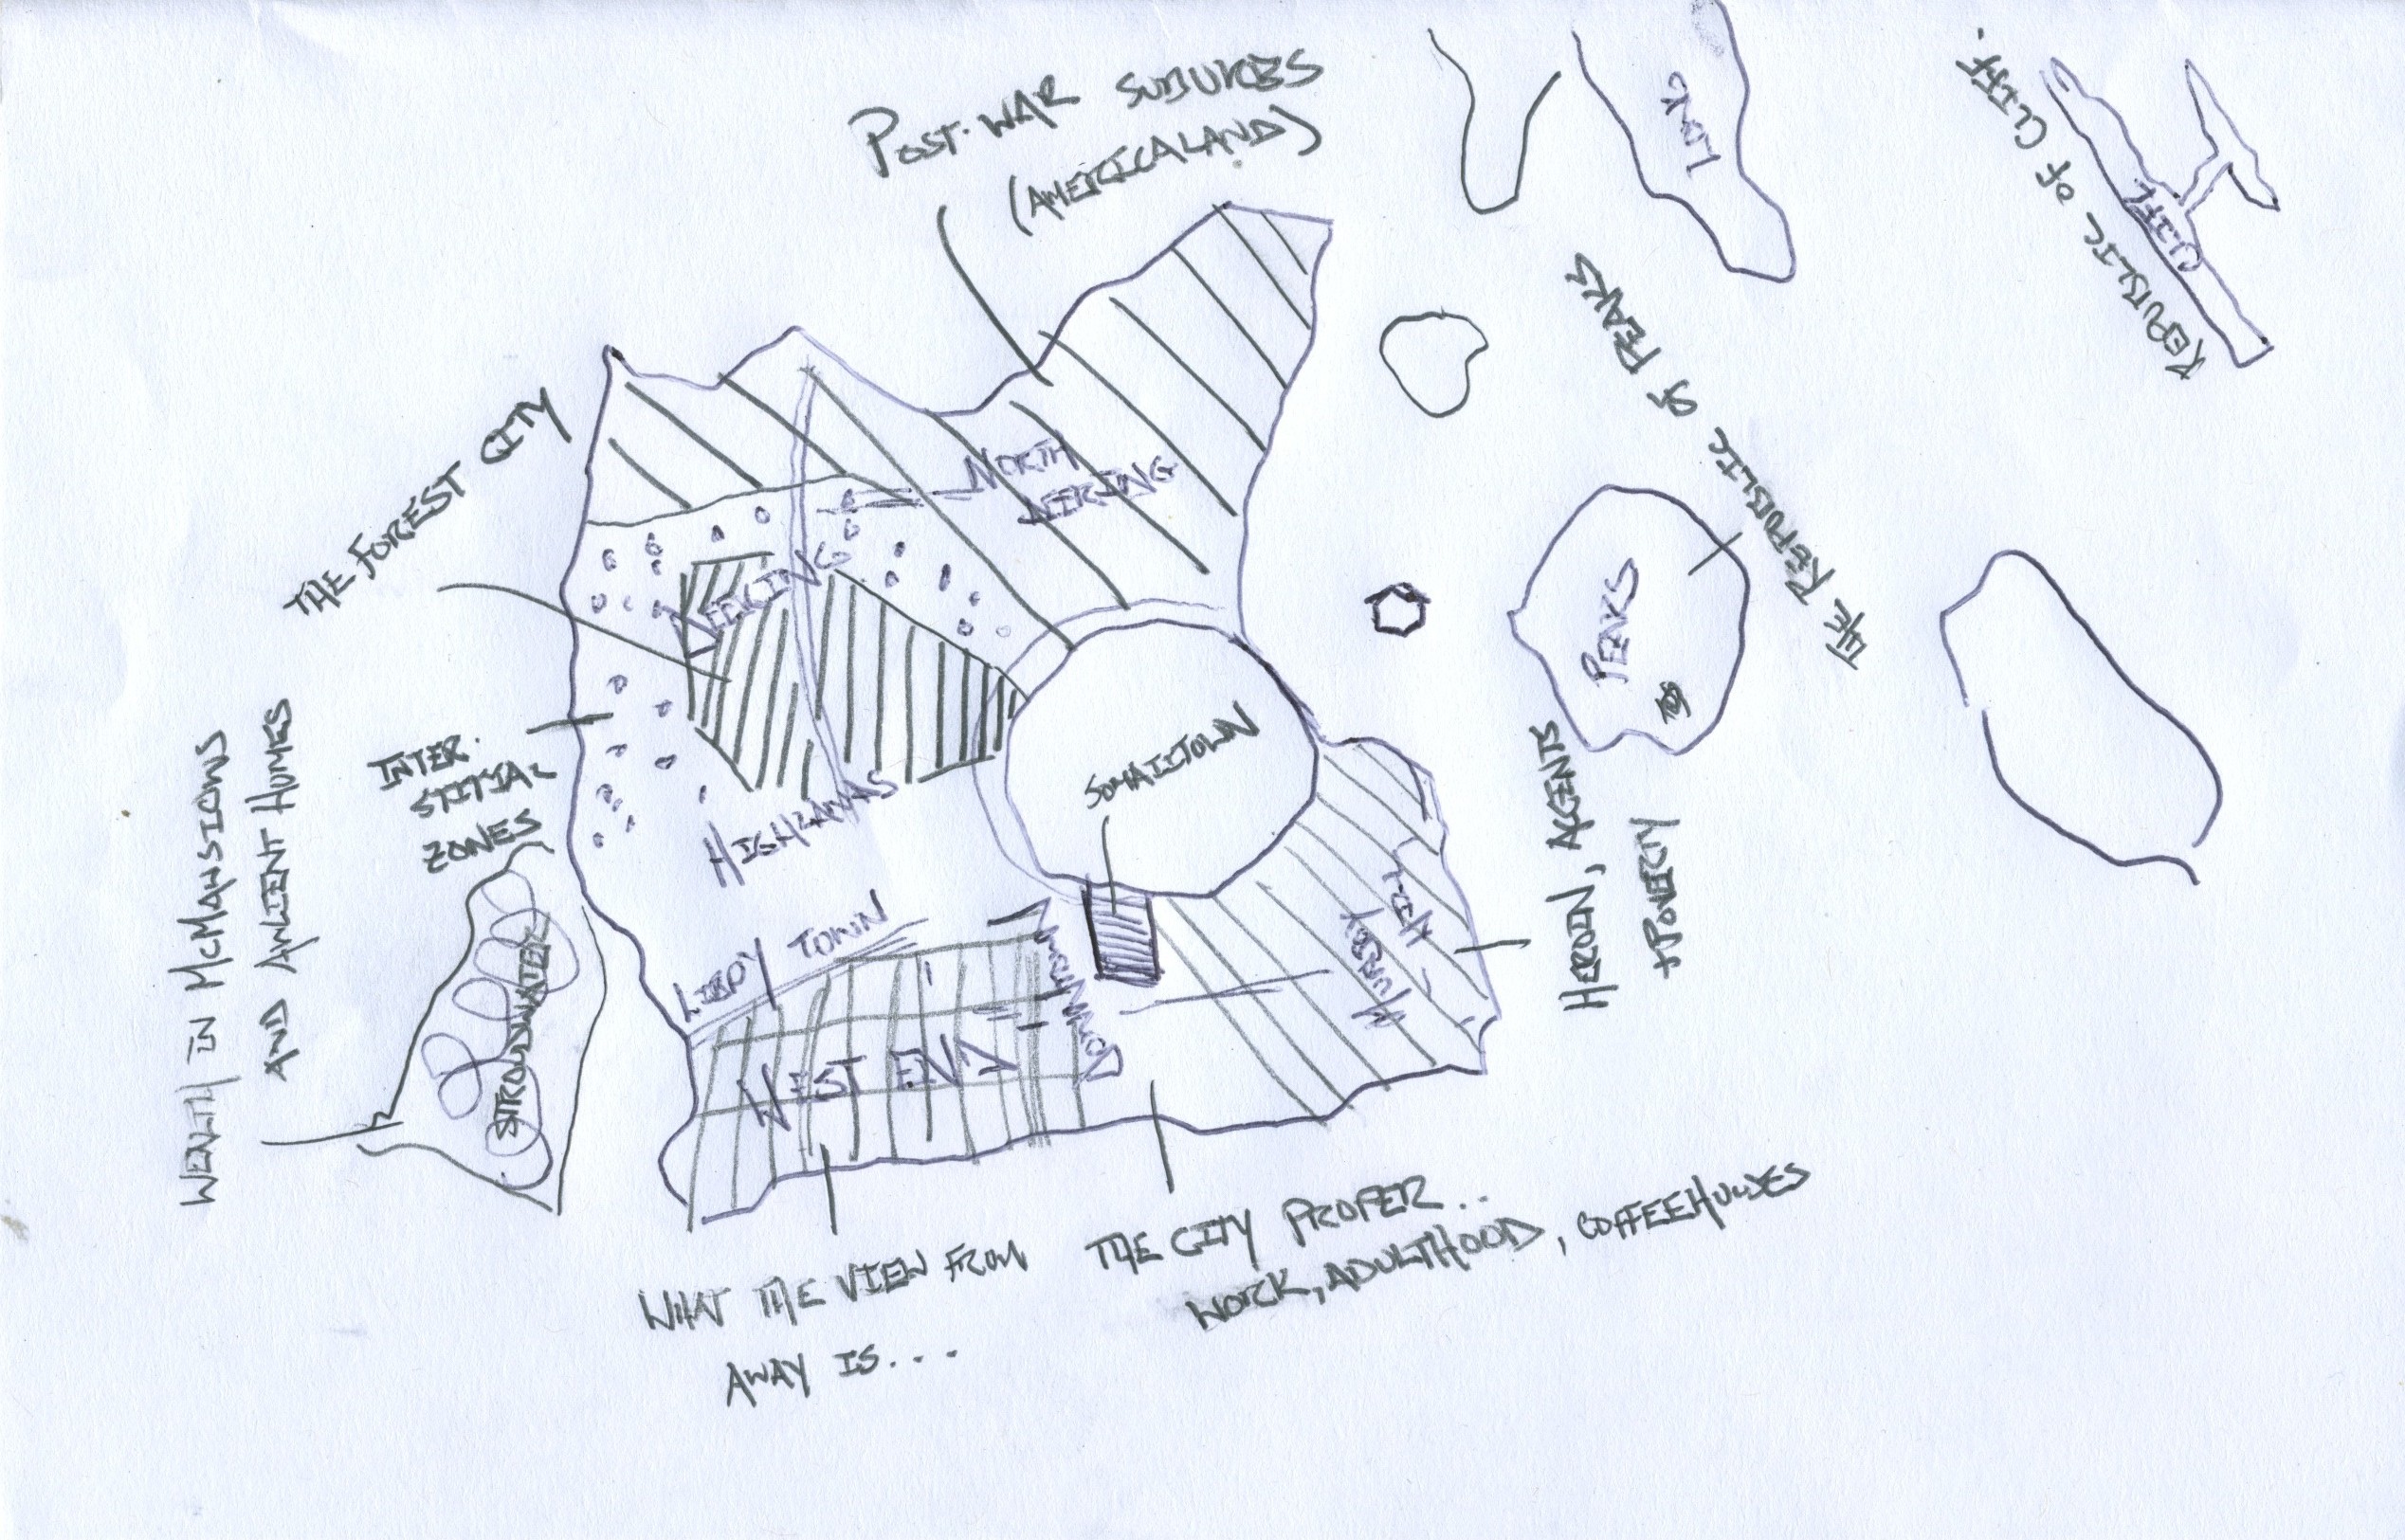 POST-WAR SUBURBS
(AMERICALAND)
LONG
REPUBLIC OF CLIFF.
CLIFF
THE REPUBLIC OF PEAKS
PEAKS
THE FOREST CITY
NORTH
DEERING
DEERING
INTER-
STITIAL
ZONES
SOMALITOWN
HIGHLANDS
LIBBY TOWN
WEALTH IN MCMANSIONS
AND ANCIENT HOMES
STROUDWATER
DOWNTOWN
WEST END
HEROIN, ACCENTS
+ POVERTY
WHAT THE VIEW FROM
AWAY IS...
THE CITY PROPER..
WORK, ADULTHOOD, COFFEEHOUSES